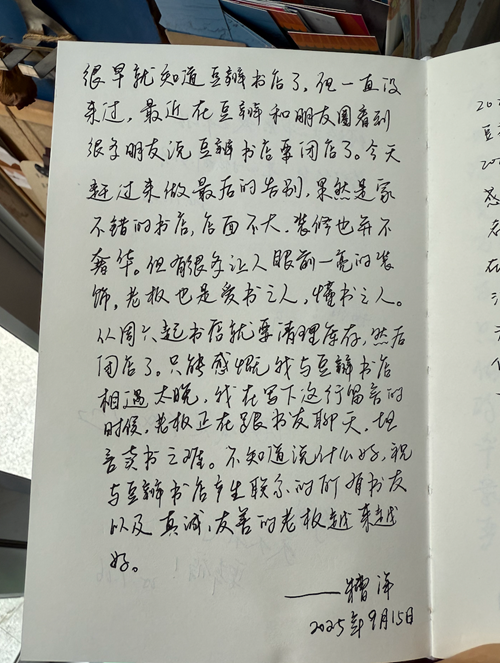 很早就知道豆瓣书店了，但一直没
来过，最近在豆瓣和朋友圈看到
很多朋友说豆瓣书店要闭店了。今天
赶过来做最后的告别，果然是家
不错的书店，店面不大，装修也并不
奢华。但有很多让人眼前一亮的装
饰，老板也是爱书之人，懂书之人。
从周六起书店就要清理库存，然后
闭店了。只能感慨我与豆瓣书店
相遇太晚，我在写下这行留言的
时候，老板正在跟书友聊天，坦
言卖书之难。不知道说什么好，祝
与豆瓣书店产生联系的所有书友
以及真诚，友善的老板越来越
好。
2025年9月15日